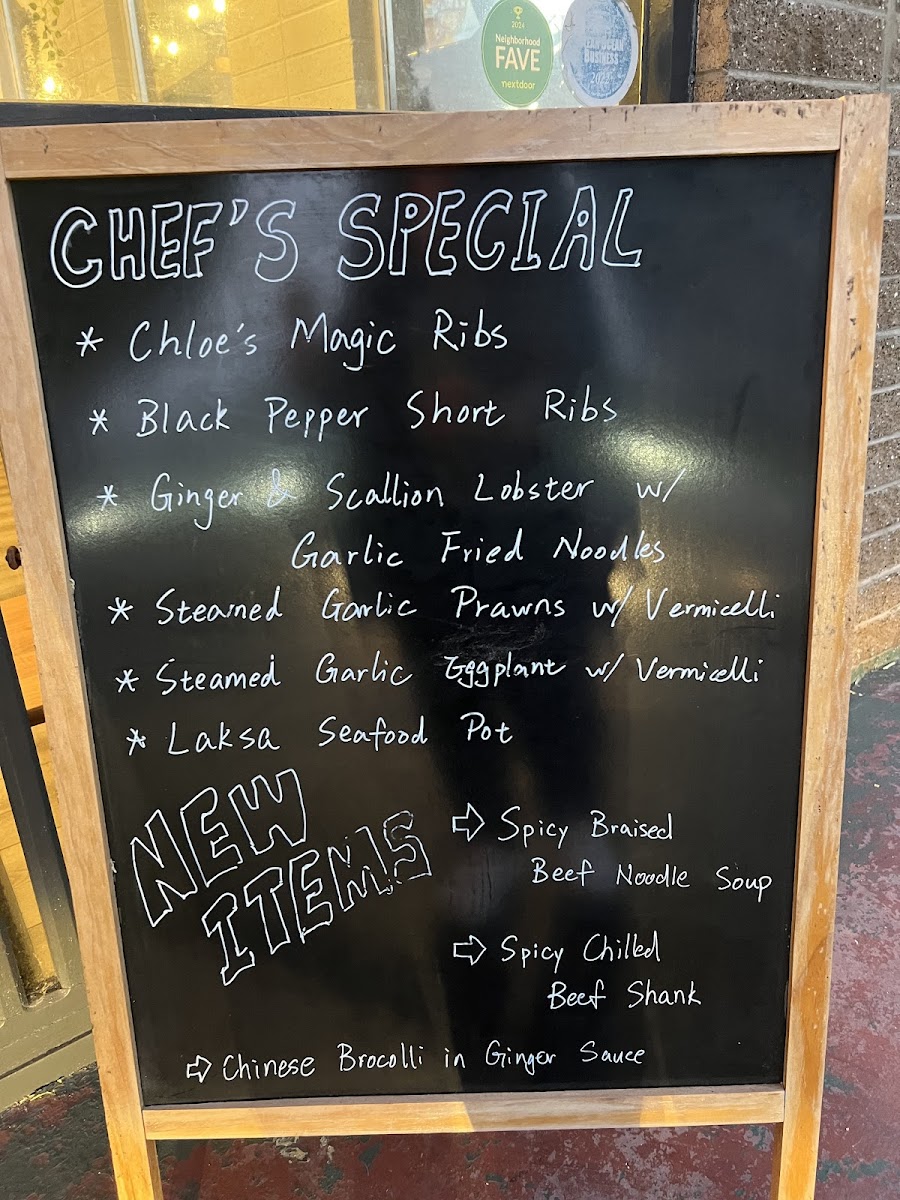 2024
Neighborhood
FAVE
nextdoor
BUSINESS
CHEF'S SPECIAL
* Chloe's Magic Ribs
* Black Pepper Short Ribs
* Ginger & Scallion Lobster w/
Garlic Fried Noodles
* Steamed Garlic Prawns w/ Vermicelli
* Steamed Garlic Eggplant w/ Vermicelli
* Laksa Seafood Pot
NEW
ITEMS
⇨ Spicy Braised
Beef Noodle Soup
⇨ Spicy Chilled
Beef Shank
⇨ Chinese Brocolli in Ginger Sauce